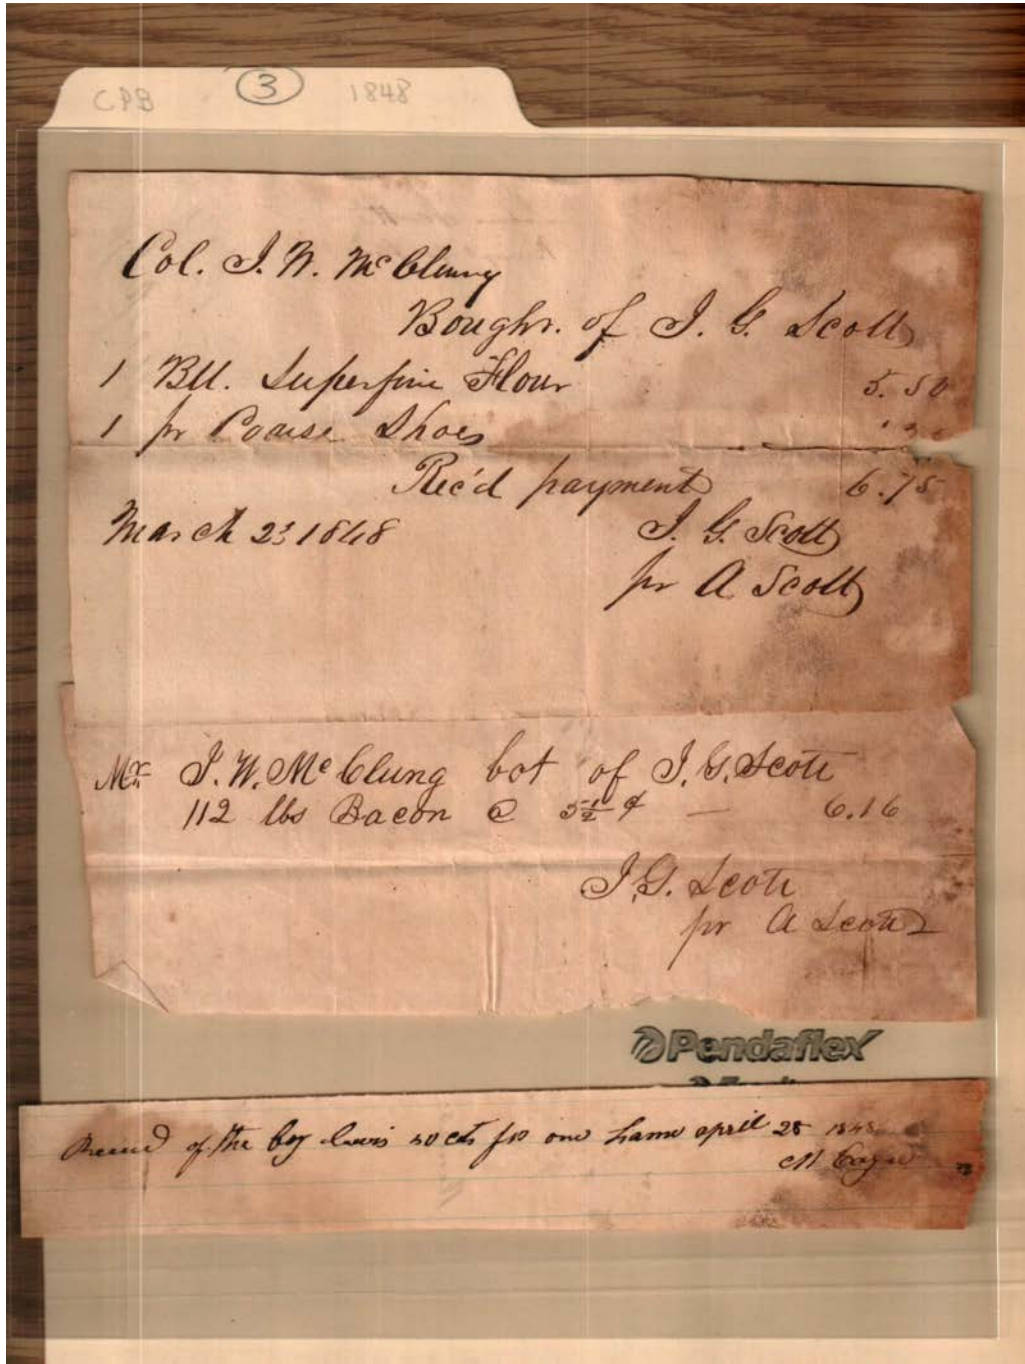 CPB 3 1848
Col. J. W. McClung
Bought. of J. G. Scott
1 Bll. Superfine Flour 5.50
1 pr Coarse Shoes
Rec'd payment 6.75
March 23 1848 J. G. Scott
pr A Scott
Mr J. W. McClung bot of J. G. Scott
112 lbs Bacon @ 5½ ¢ — 6.16
J. G. Scott
pr A Scott
Pendaflex
of the boy Lewis 50 cts for one hame april 28 1848